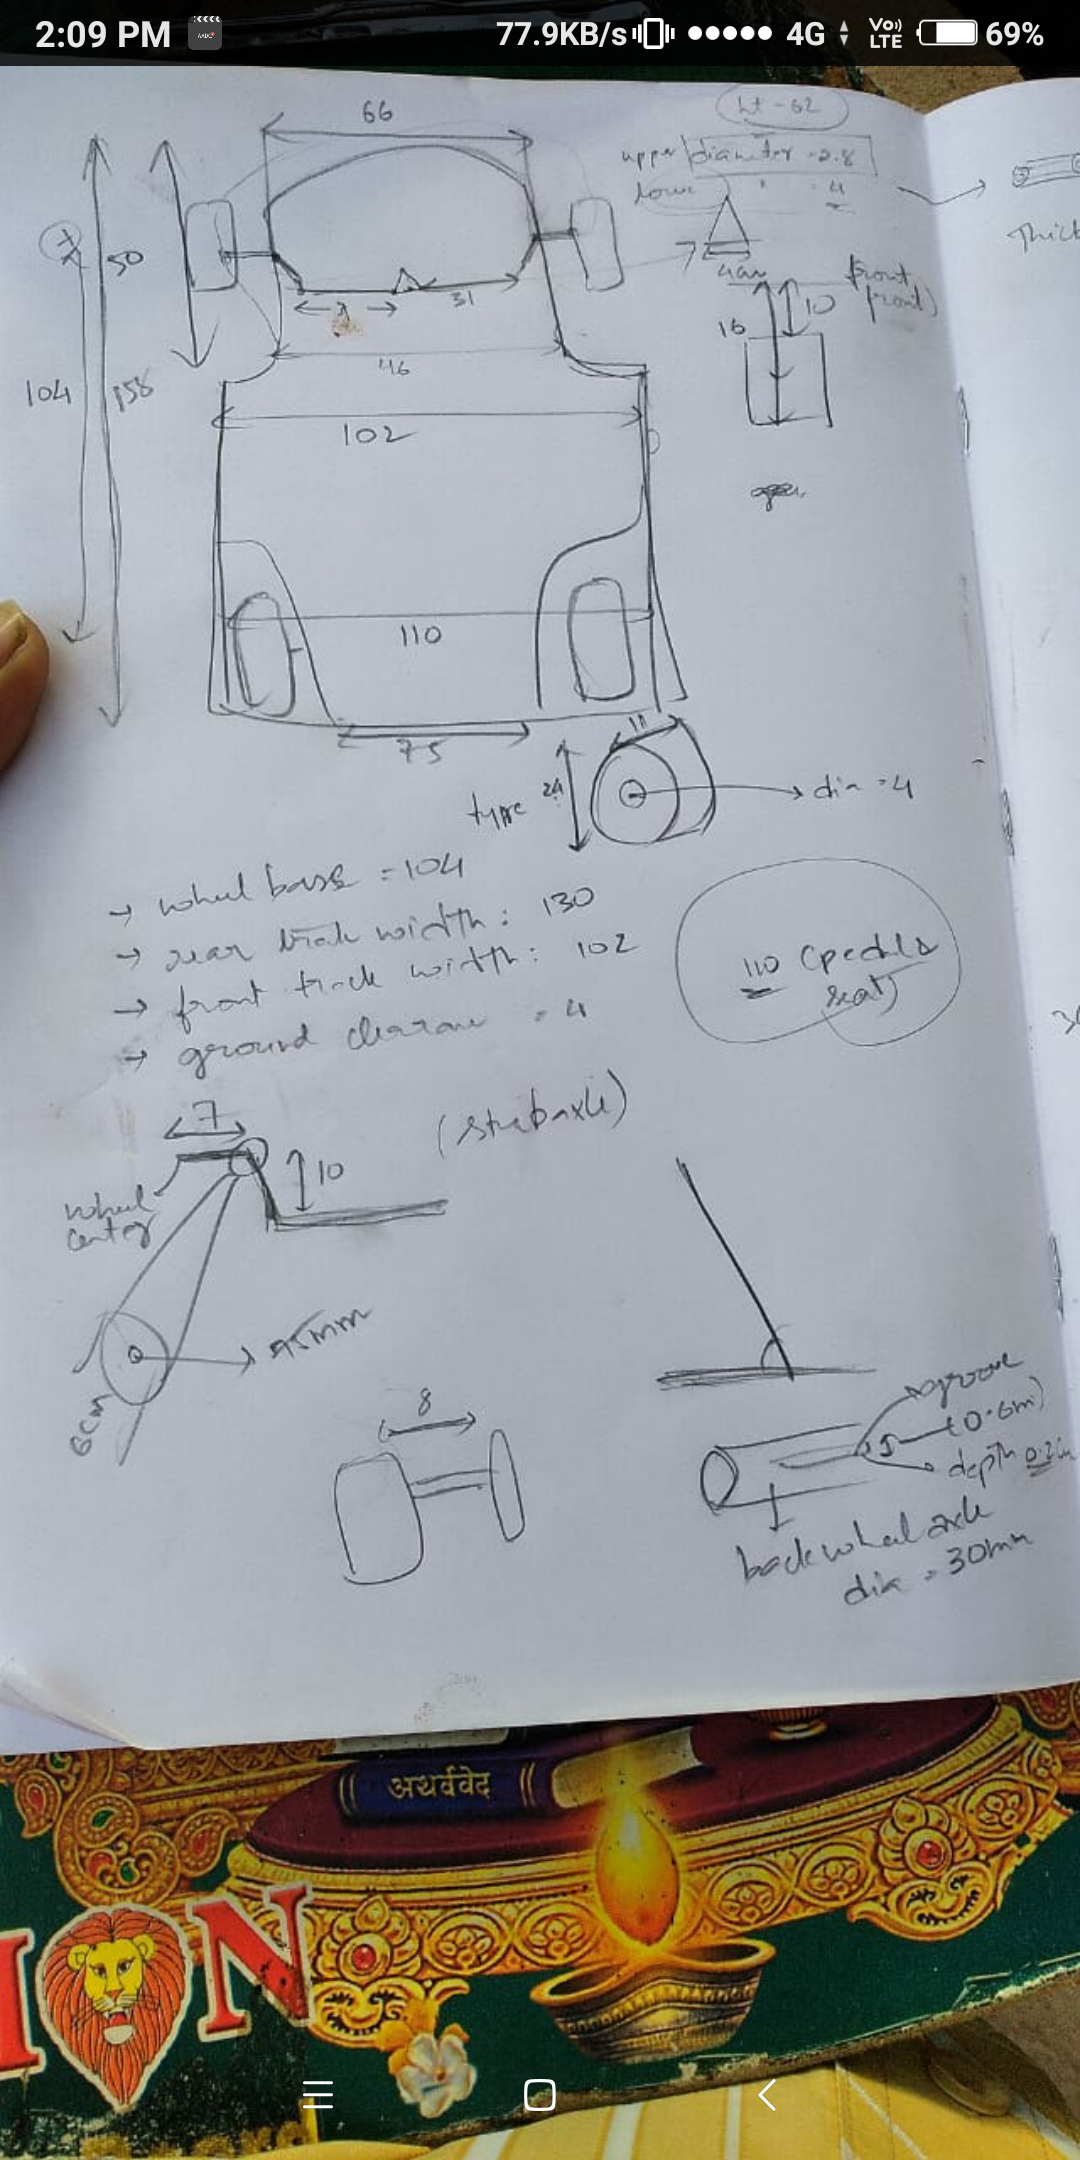 2:09 PM
77.9KB/s
4G
Vo))
LTE
69%
ht-62
66
upper diameter = 2.8
4
50
7
4cm
31
front
10
16
46
104
158
102
110
75
11
24
dia = 4
→ wheel base = 104
→ rear track width: 130
→ front track width: 102
→ ground clearance = 4
110 (pedals
seat)
7
(stubaxle)
10
wheel
center
6cm
8
groove
depth
back wheel axle
dia = 30mm
अथर्ववेद
ION